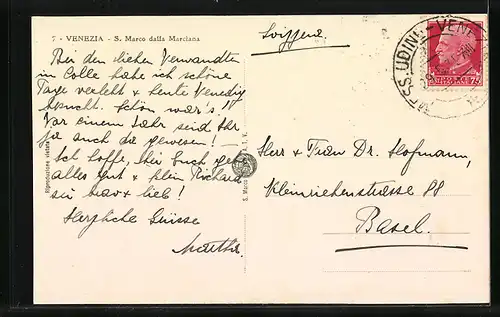 7 - VENEZIA - S. Marco dalla Marciana
Bei den lieben Verwandten
in Colle habe ich schöne
Tage verlebt & heute Venedig
besucht. Schön war's!!
Vor einem Jahr seid Ihr
ja auch da gewesen! —
Ich hoffe, bei Euch geht
alles gut & klein Richard
sei brav & lieb!
Herzliche Grüsse
Martha.
Riproduzione vietata
Svizzera.
UDINE - VENEZ
Herr & Frau Dr. Hofmann,
Kleinriehenstrasse 88
Basel.